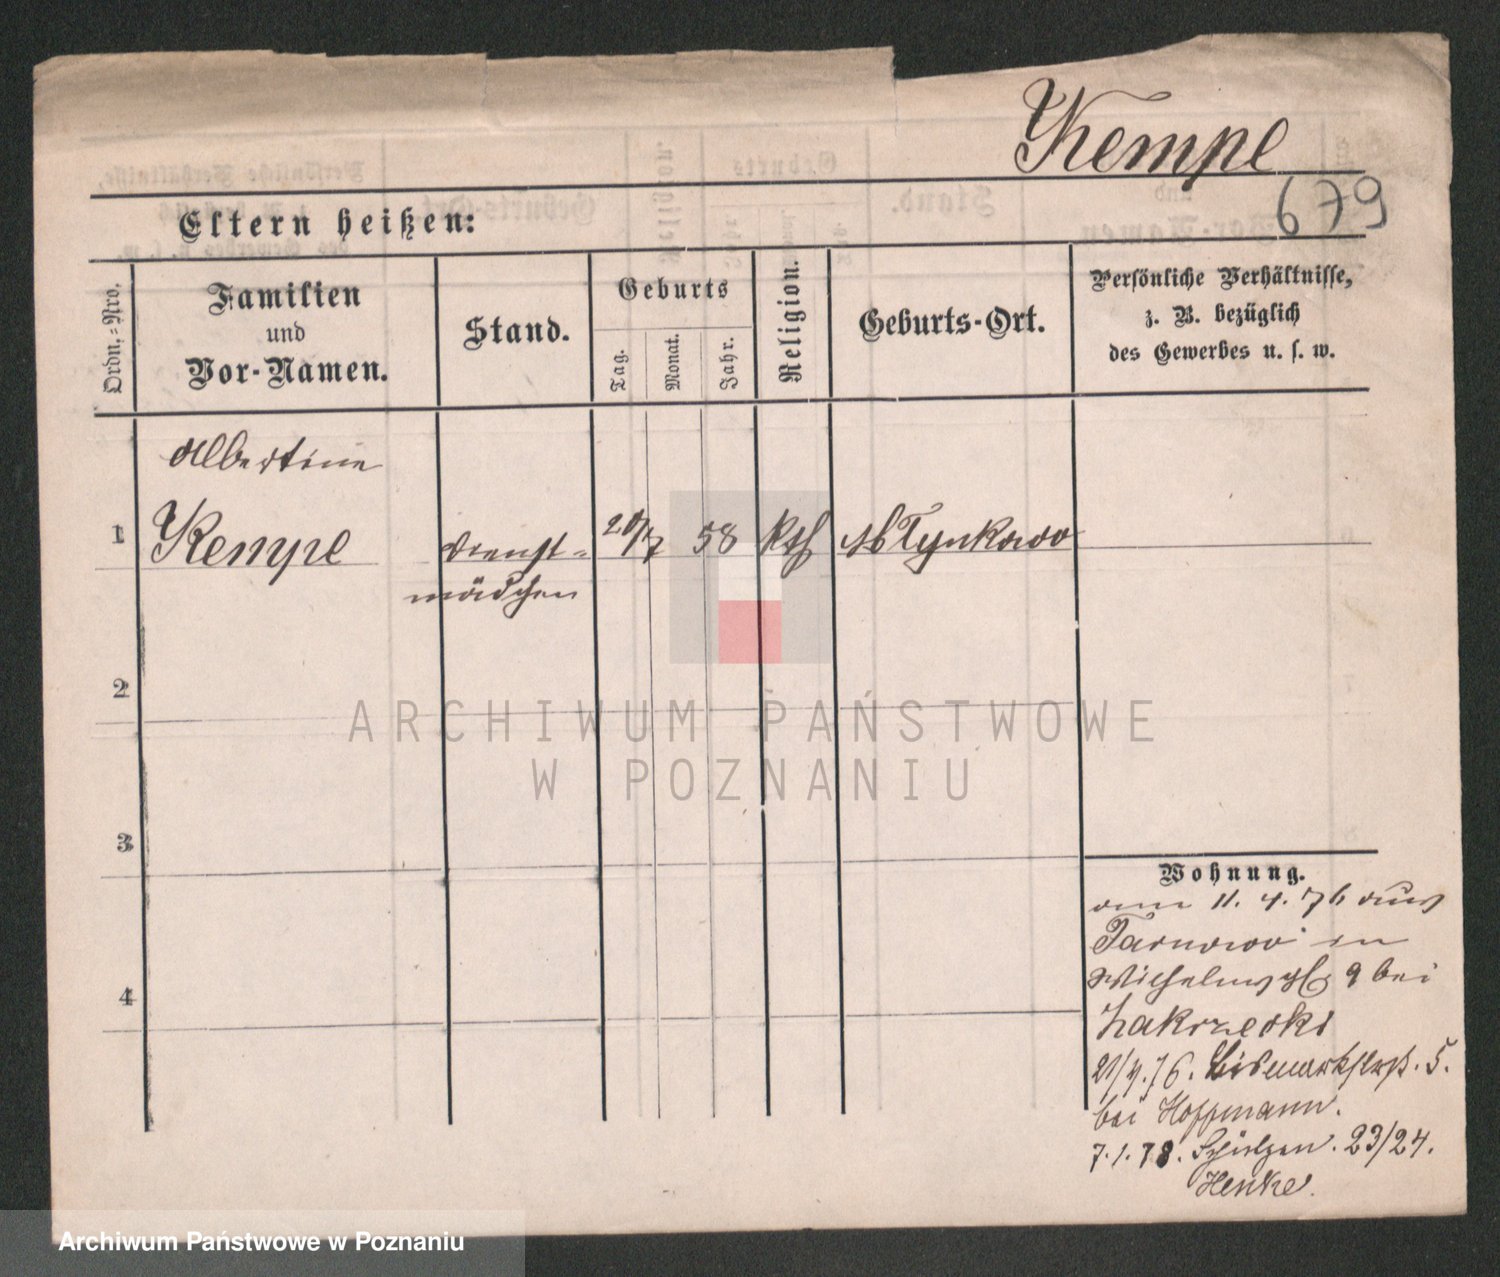 Kempe
679
Eltern heißen:
Ordn.-Nro.
Familien
und
Vor-Namen.
Stand.
Geburts
Tag.
Monat.
Jahr.
Religion.
Geburts-Ort.
Persönliche Verhältnisse,
z. B. bezüglich
des Gewerbes u. s. w.
Albertine
1 Kempe Dienst- 20/7 58 kth Tynkowo
mädchen
2
3
4
Wohnung.
11. 4. 76 aus
Tarnowo in
Wilhelmspl 9 bei
Zakrzecki
21/4. 76. Bismarkstrß. 5.
bei Hoffmann.
7. 1. 78. Schützen. 23/24.
Henke.
ARCHIWUM PAŃSTWOWE
W POZNANIU
Archiwum Państwowe w Poznaniu